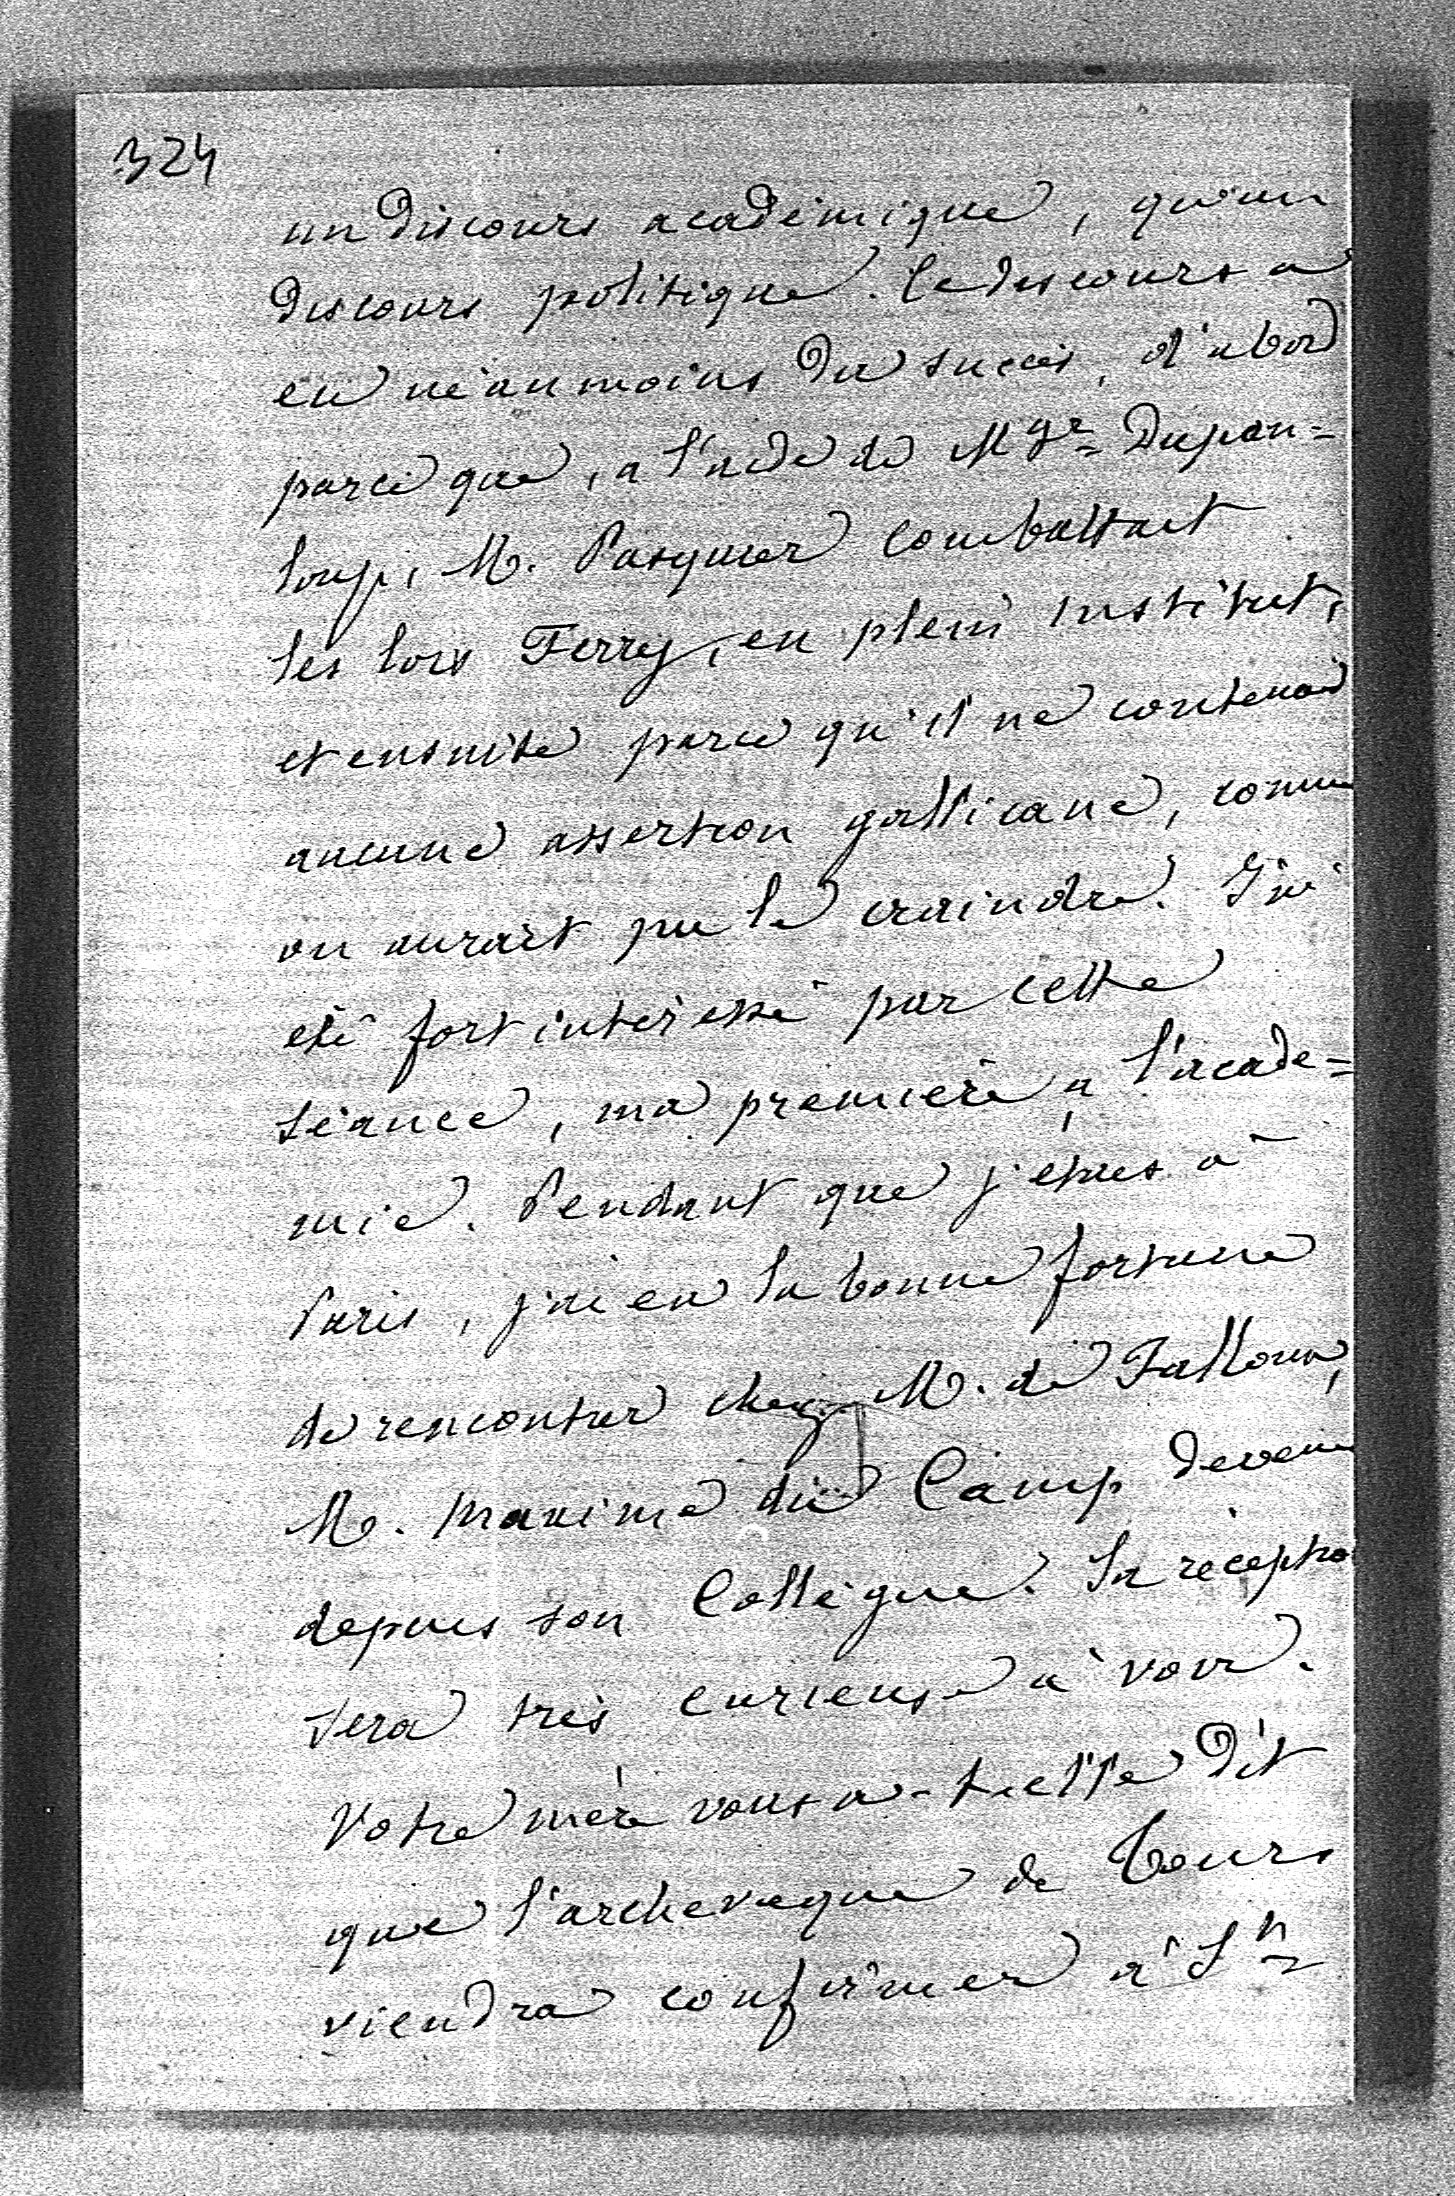 324
un discours académique, qu'un
discours politique. Ce discours a
eu néanmoins du succès, d'abord
parce que, a l'aide de Mgr Dupan=
loup, M. Pasquier combattait
les lois Ferry, en plein institut,
et ensuite parce qu'il ne contenait
aucune assertion gallicane, comme
on aurait pu le craindre. J'ai
été fort intéressé par cette
séance, ma première a l'acadé=
mie. Pendant que j'étais à
Paris, j'ai eu la bonne fortune
de rencontrer chez M. de Falloux,
M. Maxime du Camp devenu
depuis son Collègue. Sa réception
sera très curieuse à voir.
Votre mère vous a-t-elle dit
que l'archevêque de Tours
viendra confirmer à